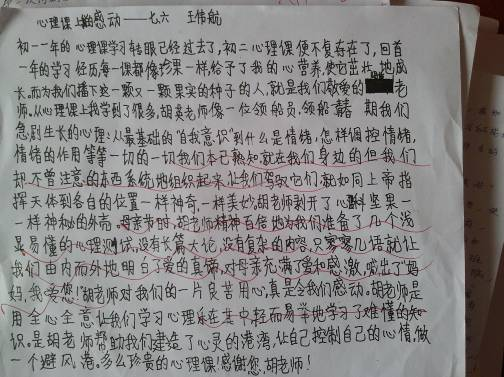 心理课上的感动——七六 王伟航
初一一年的心理课学习转眼已经过去了,初二心理课便不复存在了,回首
一年的学习经历每一课都像珍果一样,给予了我的心营养,使它茁壮地成
长。而为我们播下这一颗又一颗果实的种子的人,就是我们敬爱的 老
师。从心理课上我学到了很多,胡 老师像一位领船员,领船 期我们
急剧生长的心理:从最基础的"自我意识"到什么是情绪,怎样调控情绪,
情绪的作用等等一切的一切我们本已熟知,就在我们身边的但我们
却不曾注意的东西系统地组织起来,让我们驾驭它们,就如同上帝指
挥天体到各自的位置一样神奇,一样美妙。胡老师剥开了心 坚果一
一样神秘的外壳。母亲节时,胡老师精神百倍地为我们准备了几个浅
显易懂的心理测试,没有长篇大论,没有复杂的内容,只零零几语就让
我们由内而外地明白了爱的真谛,对母亲充满了爱和感激,喊出了"妈
妈,我爱您!"胡老师对我们的一片良苦用心,真是令我们感动。胡老师是
用全心全意让我们学习心理,在其中轻而易举地学习了难懂的知
识。是胡老师帮助我们建造了心灵的港湾,让自己控制自己的心情,做
一个避风港。多么珍贵的心理课!感谢您,胡老师!